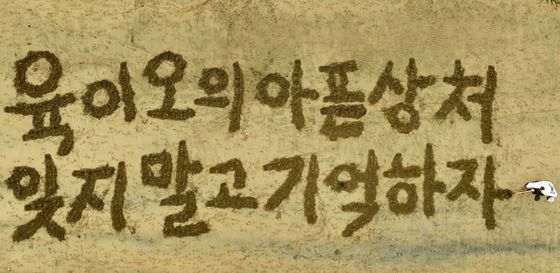 육이오의아픈상처
잊지말고기억하자